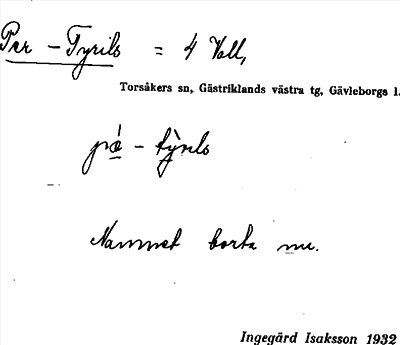 Par - Tyrils = 4 Vall,
Torsåkers sn, Gästriklands västra tg, Gävleborgs l.
pǽ - tỳrils
Namnet borta nu.
Ingegärd Isaksson 1932